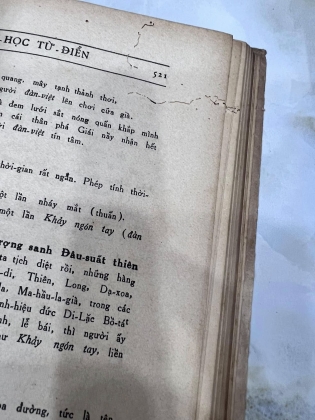 HỌC TỪ-ĐIỂN
521
quang, mây tạnh thành thơi,
người đàn-việt lên chơi cửa già.
đem lưỡi sắt nóng quấn khắp mình
cái thân phá Giái nầy nhận hết
đàn-việt tín tâm.
thời-gian rất ngắn. Phép tính thời-
một lần nháy mắt (thuấn).
một lần Khảy ngón tay (đàn
thượng sanh Đâu-suất thiên
ta tịch diệt rồi, những hàng
-di, Thiên, Long, Dạ-xoa,
la, Ma-hầu-la-già, trong các
danh-hiệu đức Di-Lặc Bồ-tát
lễ bái, thì người ấy
như Khảy ngón tay, liền
đường, tức là